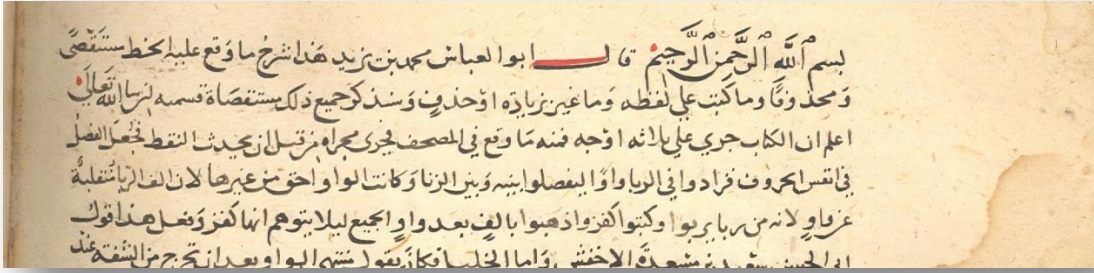 بسم الله الرحمن الرحيم قال ابو العباس محمد بن يزيد هذا شرح ما وقع عليه الخط مستقصى
ومحذوفا وما كتب على لفظه وما غير بزيادة او حذف وسنذكر جميع ذلك مستقصاة قسمه ان شا الله تعالى
اعلم ان الكتاب جري علي ثلاثه اوجه فمنه ما وقع في المصحف فجرى مجراه من قبل ان يحدث النقط فجعل الفصل
في انفس الحروف فزادوا في الربا واوا ليفصلوا بينه وبين الزنا وكانت الواو احق من غيرها لان الف الربا منقلبة
عن واو لانه من ربا يربوا وكتبوا كفروا ذهبوا بالف بعد واو الجميع ليلا يتوهم انها كفر وفعل هذا قول
ابي الحسن سعيد بن مسعدة الاخفش واما الخليل فكان يقول منتهى الواو بعد ان تخرج من الشفة عند